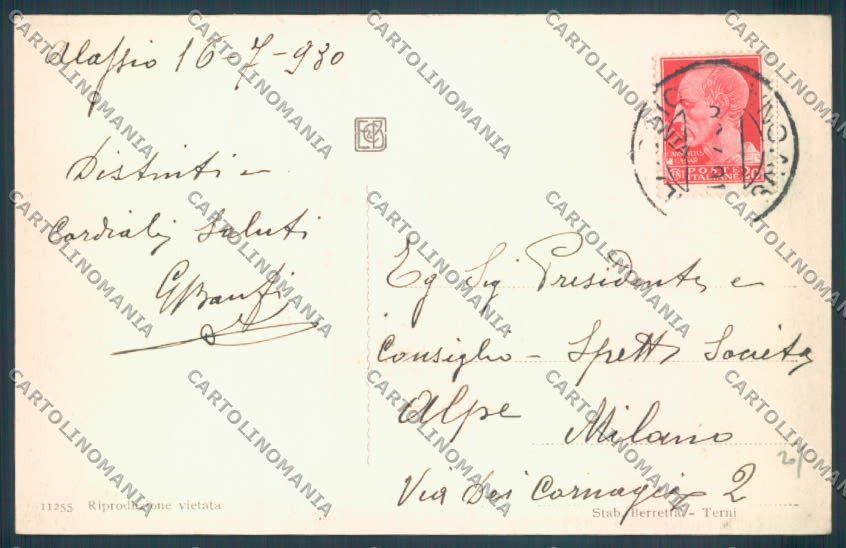 Alassio 16-7-930
Distinti e
Cordiali Saluti
GBanfi
Eg Sig Presidente e
Consiglio - Spett Società
Alpe Milano
Via Dei Cornaggia 2
POSTE
ITALIANE 20
11255 Riproduzione vietata
Stab. Berretta - Terni
CARTOLINOMANIA